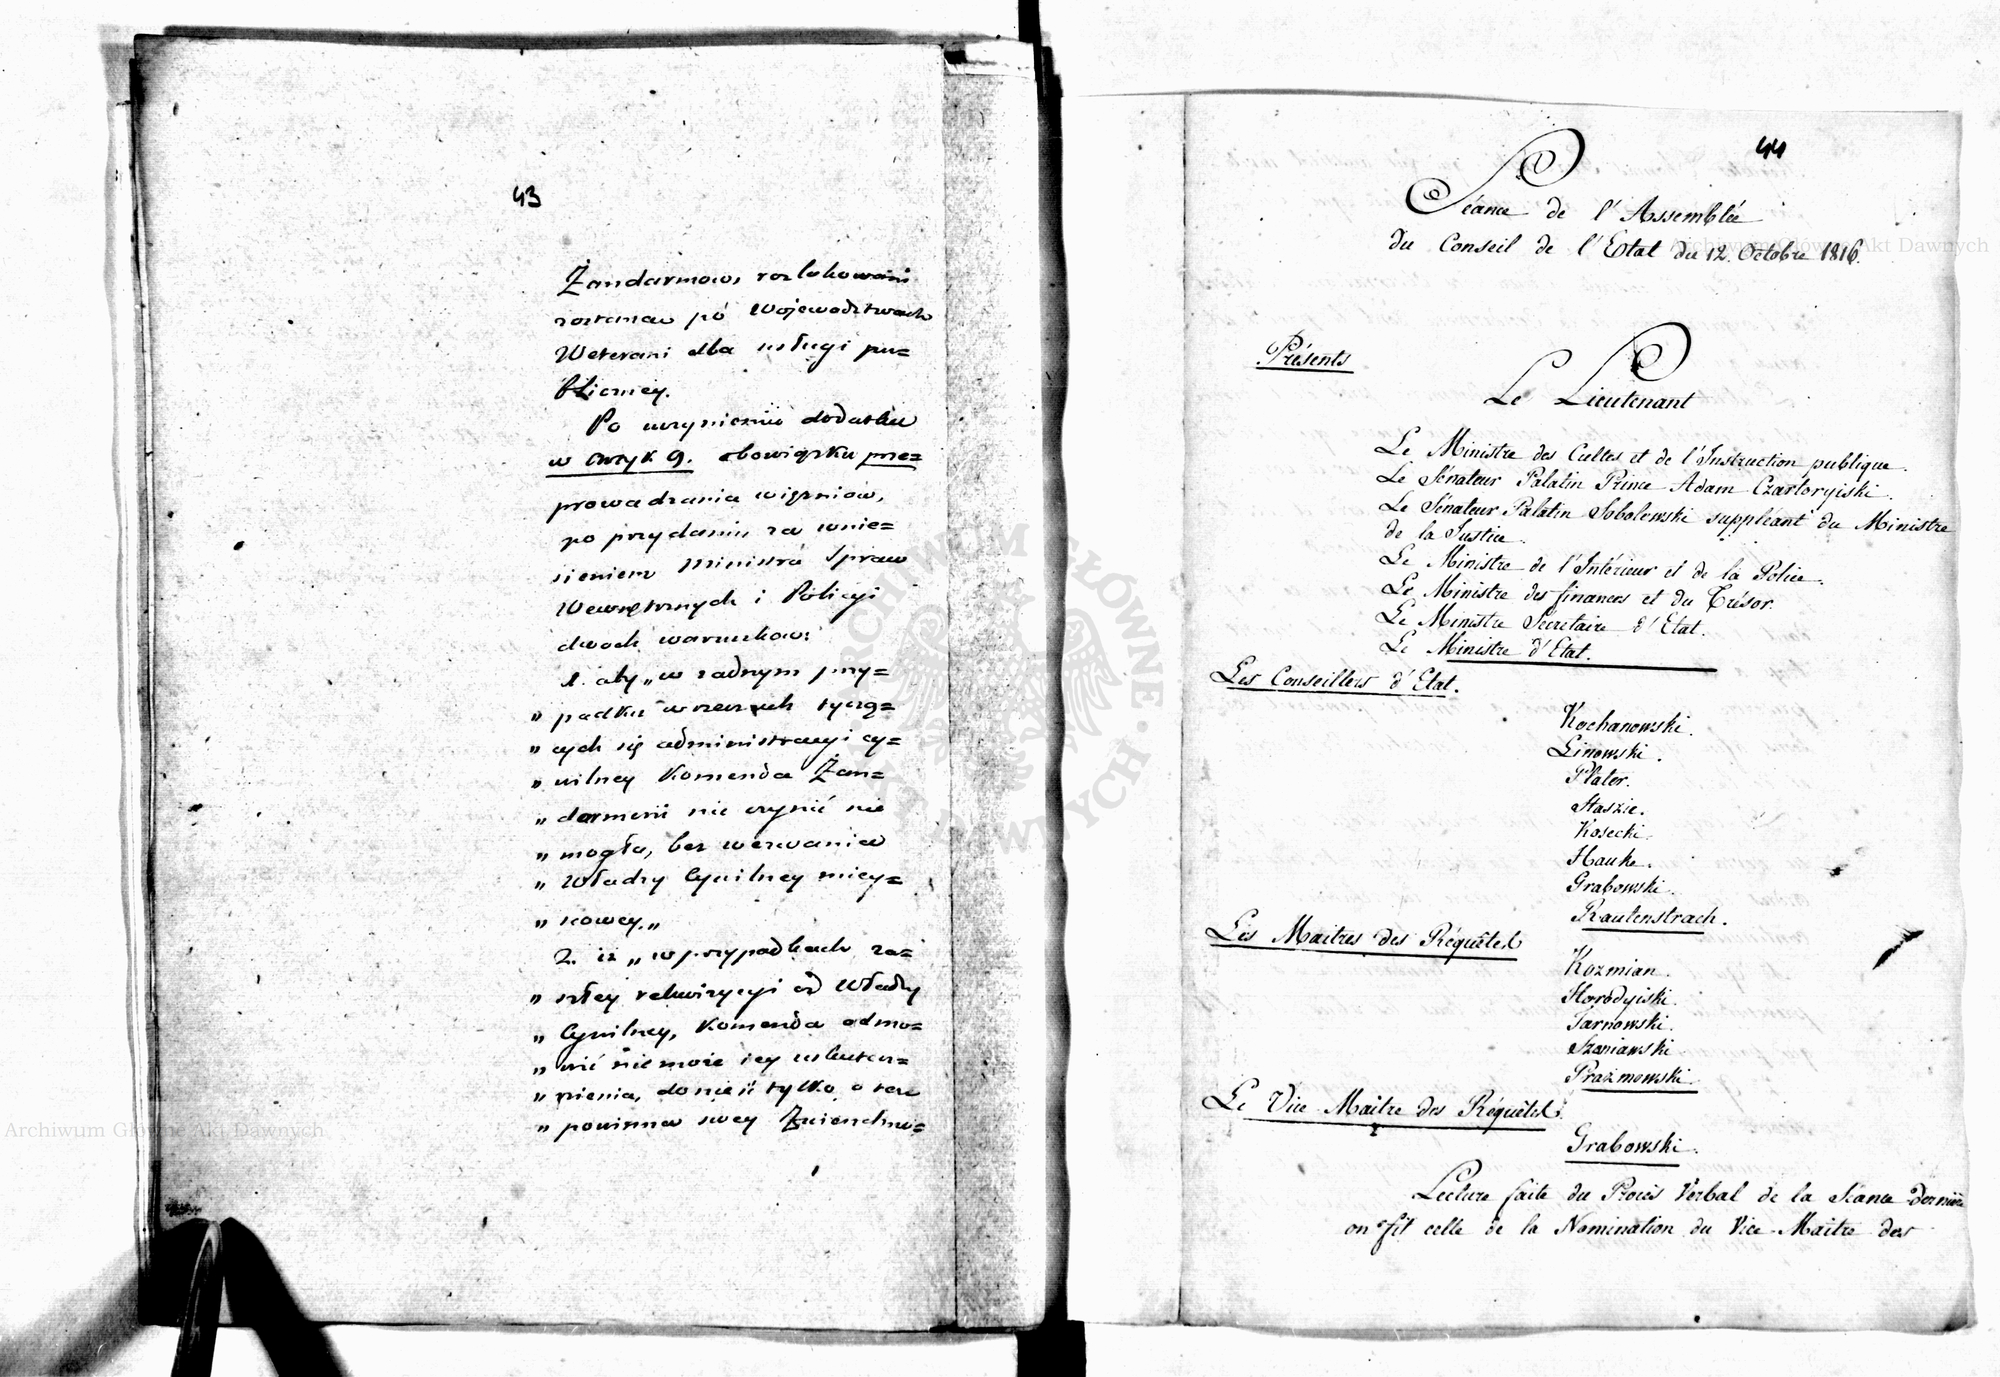 43
Żandarmow, rozlokowani
zostaną po Województwach
Weterani dla usługi pu=
bliczney.
Po uczynieniu dodatku
w Artyk 9. obowiązku prze=
prowadzania więzniow,
po przydaniu za wnie=
sieniem Ministra Spraw
Wewnętrznych i Policyi
dwoch warunkow:
1. aby „w żadnym przy=
„ padku w rzeczach tyczą=
„ cych się administracyi cy=
„ wilney Komenda Żan=
„ darmerii nic czynić nie
„ mogła, bez wezwania
„ Władzy Cywilney miey=
„ scowey.„
2. iż „w przypadkach za=
„ szłey rekwizycyi od Władzy
„ Cywilney, Komenda odmo=
„ wić nie może iey uskutecz=
„ nienia, donieść tylko o tem
„ powinna swey Zwierzchno=
44
Séance de l'Assemblée
du Conseil de l'Etat du 12. Octobre 1816.
Présents
Le Lieutenant
Le Ministre des Cultes et de l'Instruction publique.
Le Sénateur Palatin Prince Adam Czartoryiski.
Le Sénateur Palatin Sobolewski suppléant du Ministre
de la Justice.
Le Ministre de l'Intérieur et de la Police.
Le Ministre des finances et du Trésor.
Le Ministre Secretaire d'Etat.
Le Ministre d'Etat.
Les Conseillers d'Etat.
Kochanowski.
Linowski.
Plater.
Staszic.
Kosecki.
Hauke.
Grabowski.
Rautenstrach.
Les Maitres des Réquêtes
Kozmian.
Horodyiski.
Tarnowski.
Szaniawski.
Prażmowski.
Le Vice-Maître des Réquêtes.
Grabowski.
Lecture faite du Procès Verbal de la Séance dernière
on fit celle de la Nomination du Vice-Maître des
Archiwum Główne Akt Dawnych
Archiwum Główne Akt Dawnych
ARCHIWUM GŁÓWNE AKT DAWNYCH